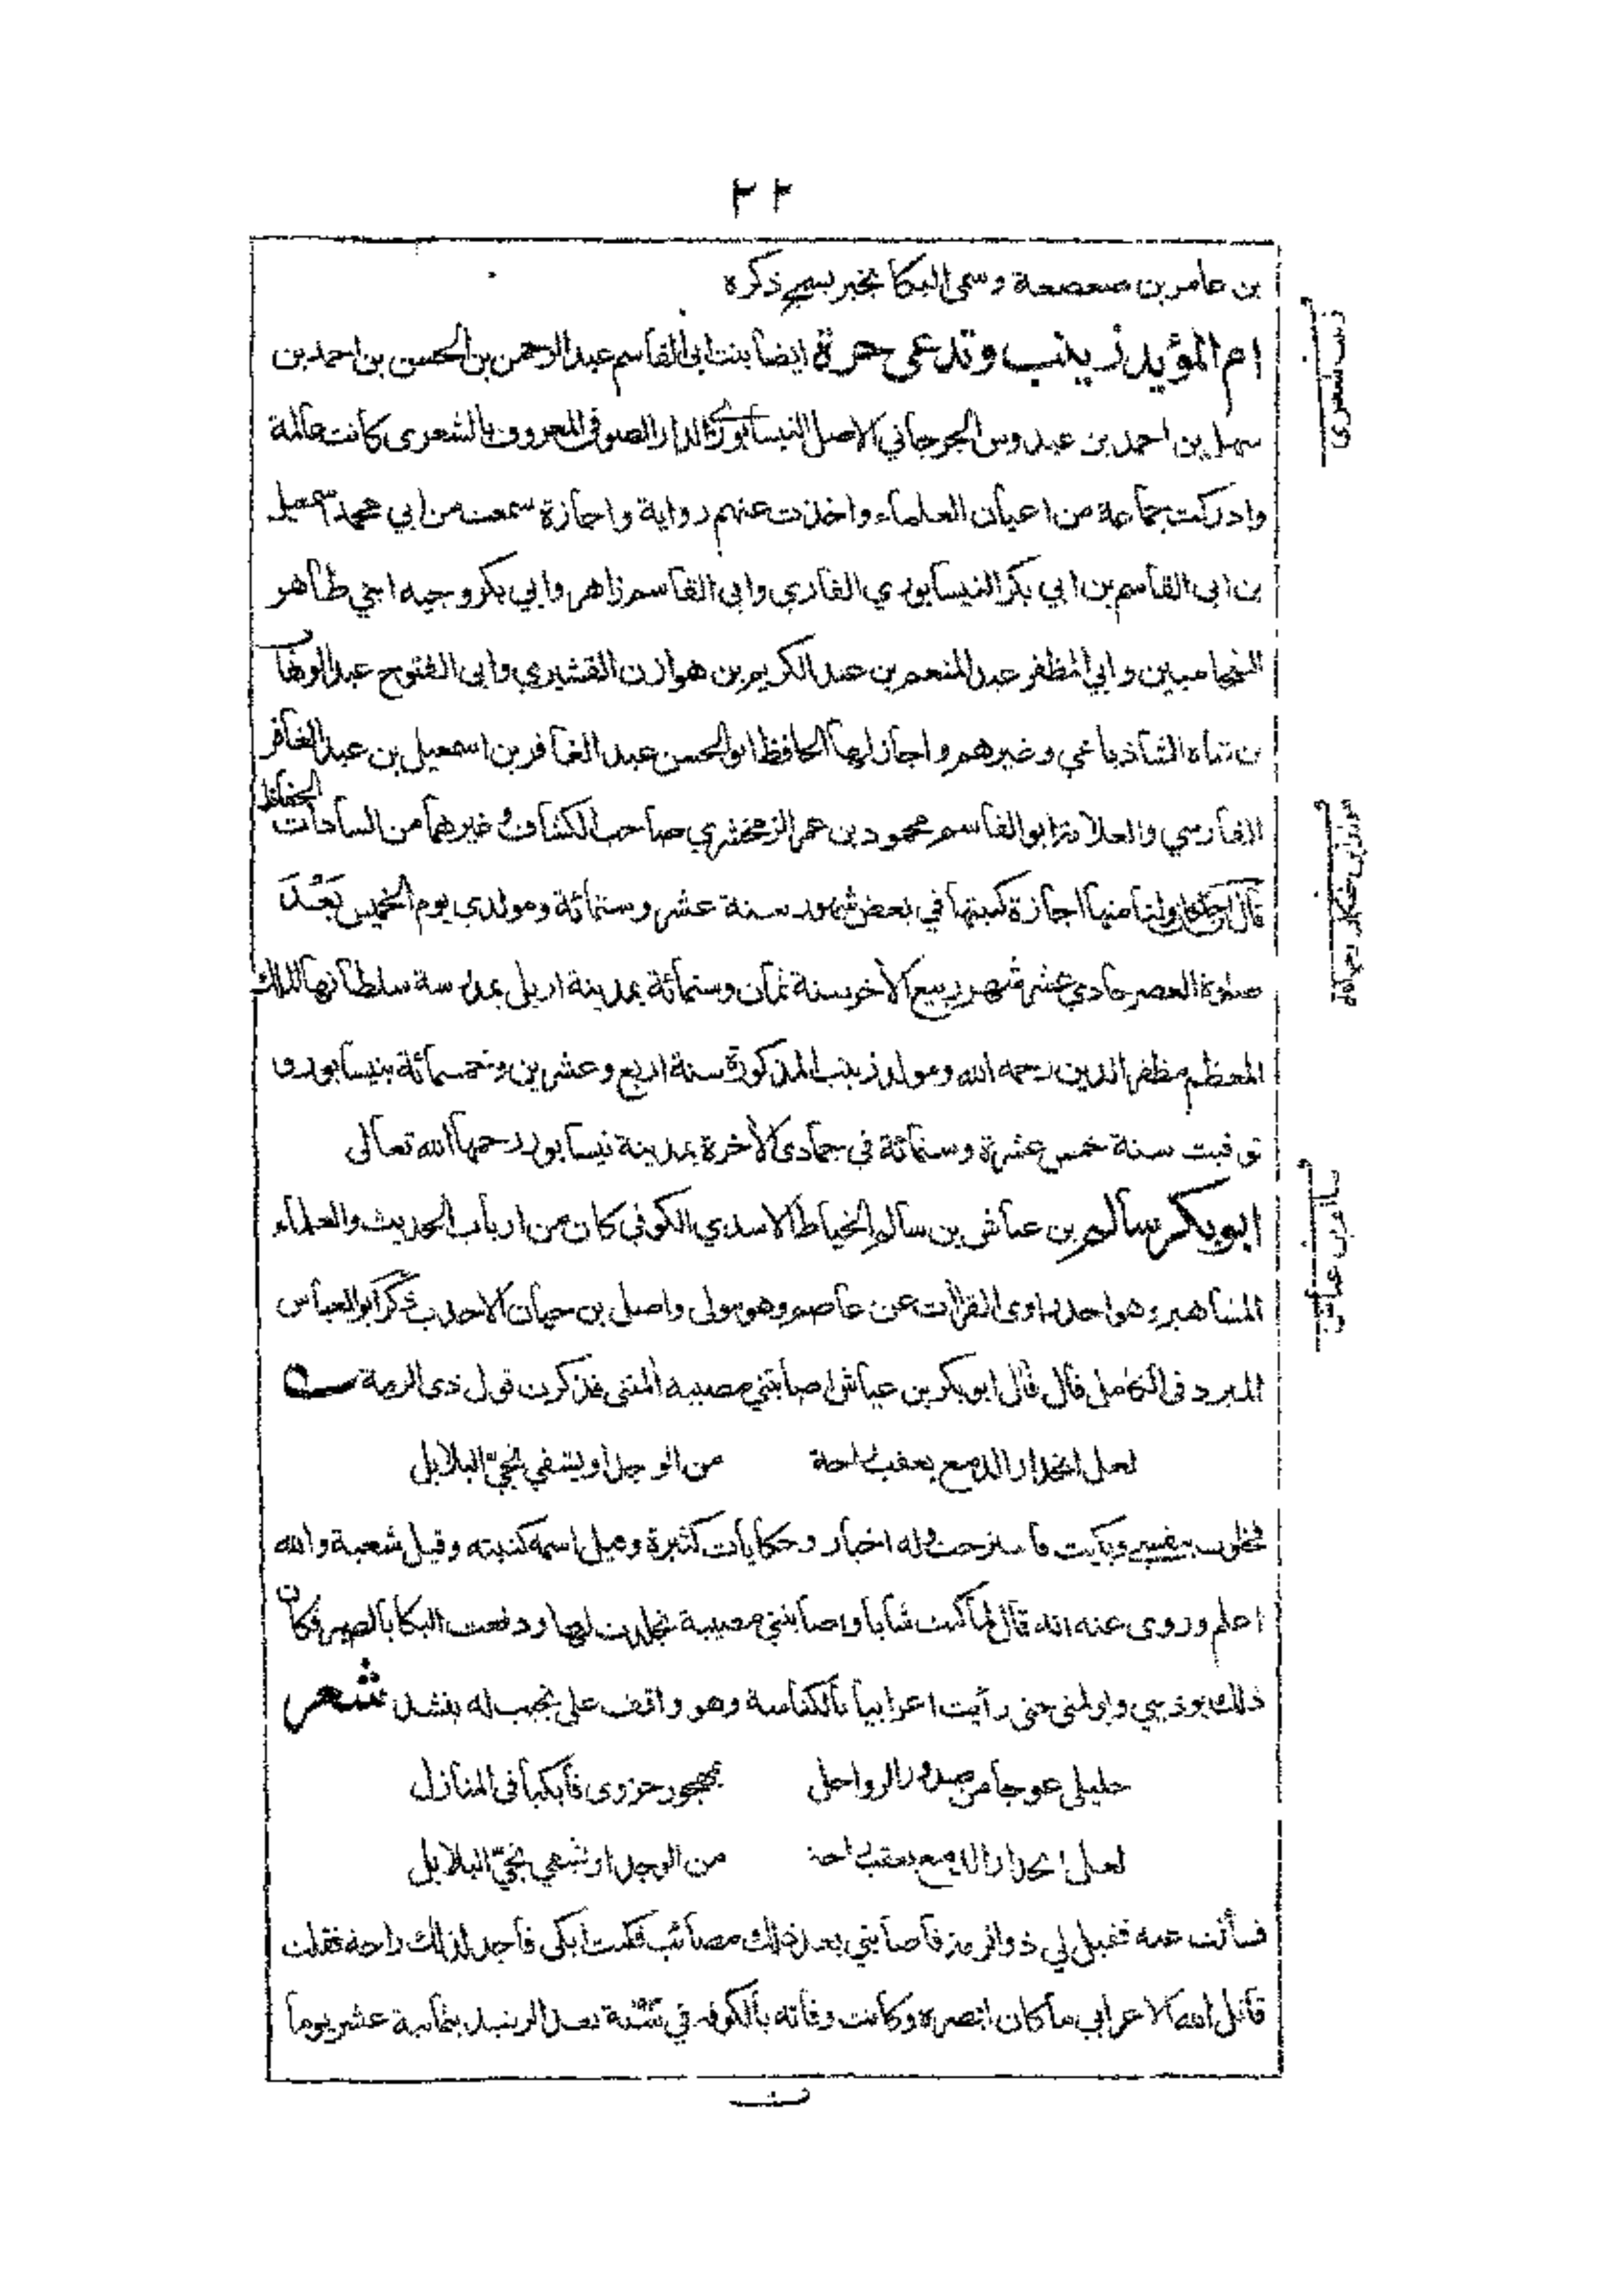 ٢٢
بن عامر بن صعصعة وسمى البكا بخبر يسمج ذكره
ام المؤيد زينب وتدعى حرة ايضا بنت ابى القاسم عبد الرحمن بن الحسن بن احمد بن
سهل بن احمد بن عبدوس الجرجاني الاصل النيسابوري الدار الصوفى المعروف بالشعرى كانت عالمة
وادركت جماعة من اعيان العلماء واخذت عنهم رواية واجازة سمعت من ابي محمد اسمعيل
بن ابى القاسم بن ابي بكر النيسابوري القارى وابى القاسم زاهر وابي بكر وجيه ابني طاهر
الشحاميين وابي المظفر عبد المنعم بن عبد الكريم بن هوازن القشيري وابى الفتوح عبد الوهاب
بن شاه الشاذياخي وغيرهم واجاز لها الحافظ ابو الحسن عبد الغافر بن اسمعيل بن عبد الغافر
الفارسي والعلامة ابو القاسم محمود بن عمر الزمخشري صاحب الكشاف وغيرهما من السادات الحفاظ
ولنا منها اجازة كتبتها في بعض شهور سنة عشر وستمائة ومولدي يوم الخميس بَعْدَ
صلوة العصر حادي عشر شهر ربيع الآخر سنة ثمان وستمائة بمدينة اربل بمدرسة سلطانها الملك
المعظم مظفر الدين رحمه الله ومولد زينب المذكورة سنة اربع وعشرين وخمسمائة بنيسابور و
توفيت سنة خمس عشرة وستمائة في جمادى الآخرة بمدينة نيسابور رحمها الله تعالى
ابو بكر سالم بن عياش بن سالم الخياط الاسدي الكوفي كان من ارباب الحديث والعلماء
المشاهير وهو احد راوى القرآت عن عاصم وهو مولى واصل بن حيان الاحدب ذكر ابو العباس
المبرد فى الكامل قال قال ابو بكر بن عياش اصابتني مصيبة المتنى فذكرت قول ذى الرمة
لعل انحدار الدمع يعقب راحة من الوجد او يشفي نجيّ البلابل
فخلوت بنفسى وبكيت فاسترحت وله اخبار وحكايات كثيرة وقيل اسمه كنيته وقيل شعبة والله
اعلم وروى عنه انه قال لما كنت شابا واصابتني مصيبة تجلدت لها ودفعت البكا بالصبر فكان
ذلك يوذيني ويولمنى حتى رأيت اعرابيا بالكناسة وهو واقف على نجيب له ينشد شعر
خليلي عوجا من صدور الرواحل بمهجور حزوى فابكيا فى المنازل
لعل انحدار الدمع يعقب راحة من الوجد او يشفي نجيّ البلابل
فسألت عنه فقيل لي ذو الرمة فاصابتني بعد ذلك مصائب فكنت ابكى فاجد لذلك راحة فقلت
قاتل الله الاعرابي ما كان ابصره وكانت وفاته بالكوفة في سنة بعد الرشيد بثمانية عشر يوما
زينب شعري
ابن عياش